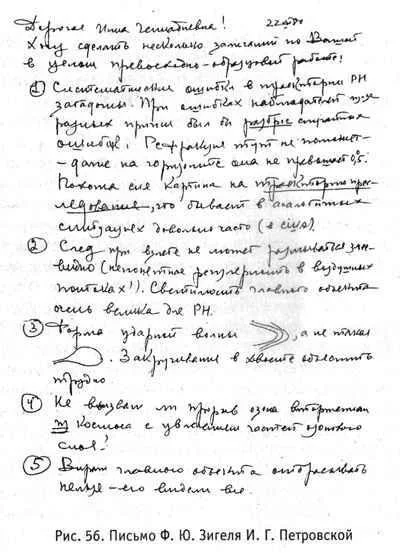 Дорогая Инна Геннадиевна!
Хочу сделать несколько замечаний по Вашей
в целом превосходно-образцовой работе:
① Систематические ошибки в траектории РН
загадочны. При ошибках наблюдателей из-за
разных причин был бы разброс
ошибок. Рефракция тут не поможет –
– даже на горизонте она не превышает 0,5.
Похожа сия картина на траекторию прес-
ледования, что бывает в аналогичных
ситуациях довольно часто (в
② След при взлете не может размываться
видно (непонятная регулярность в воздушных
потоках!). Светимость главного объекта
очень велика для РН.
③ Форма ударной волны , а не такая
. Закручивание в хвосте объяснить
трудно
④ Не вызван ли прорыв озона вторжением
из космоса с увлечением частей озонового
слоя?
⑤ Вираж главного объекта отбрасывать
нельзя – его видели все.
Рис. 56. Письмо Ф. Ю. Зигеля И. Г. Петровской